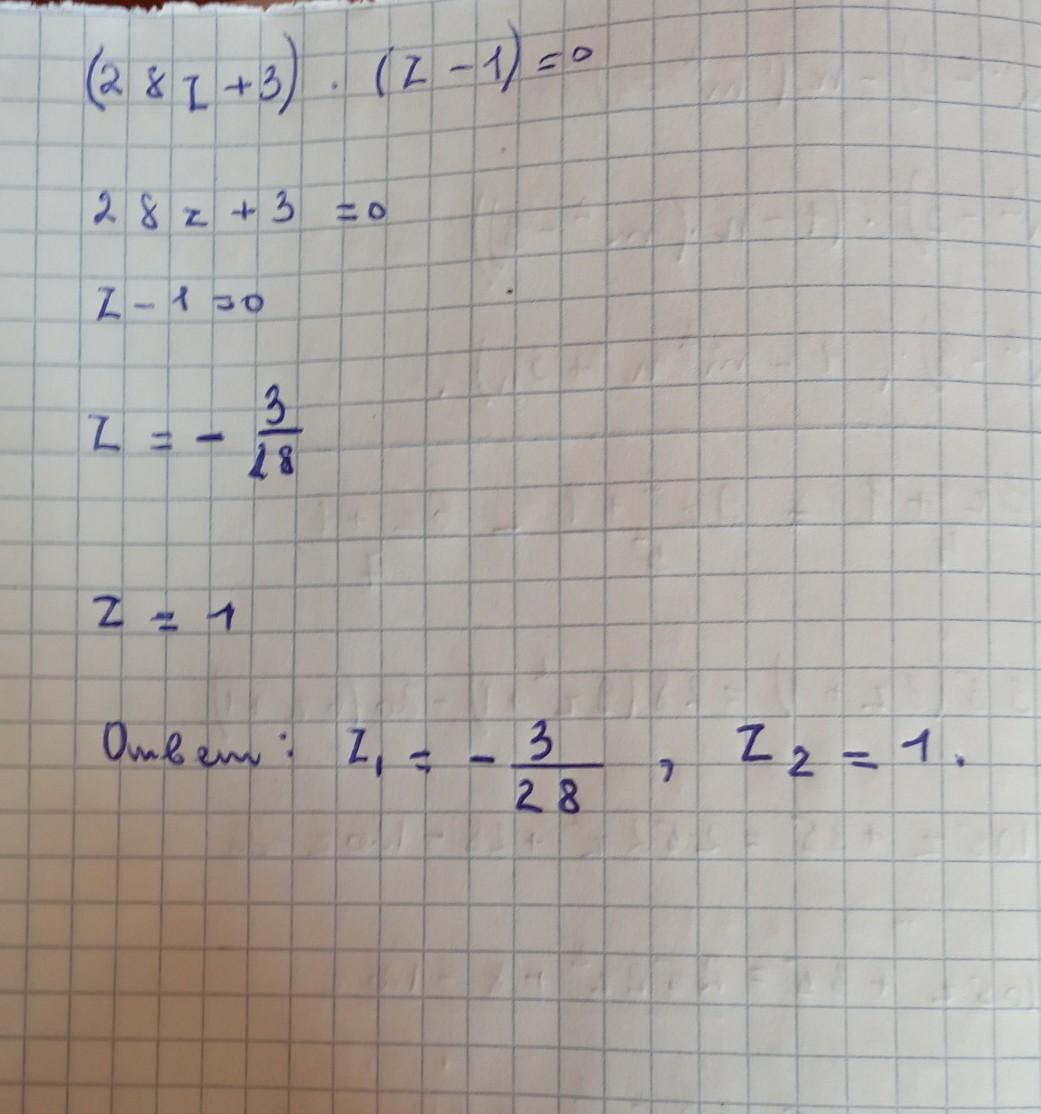 (28z+3) · (z-1)=0
28z+3=0
z-1=0
z = - 3/28
z = 1
Ответ: z₁ = - 3/28 , z₂ = 1.